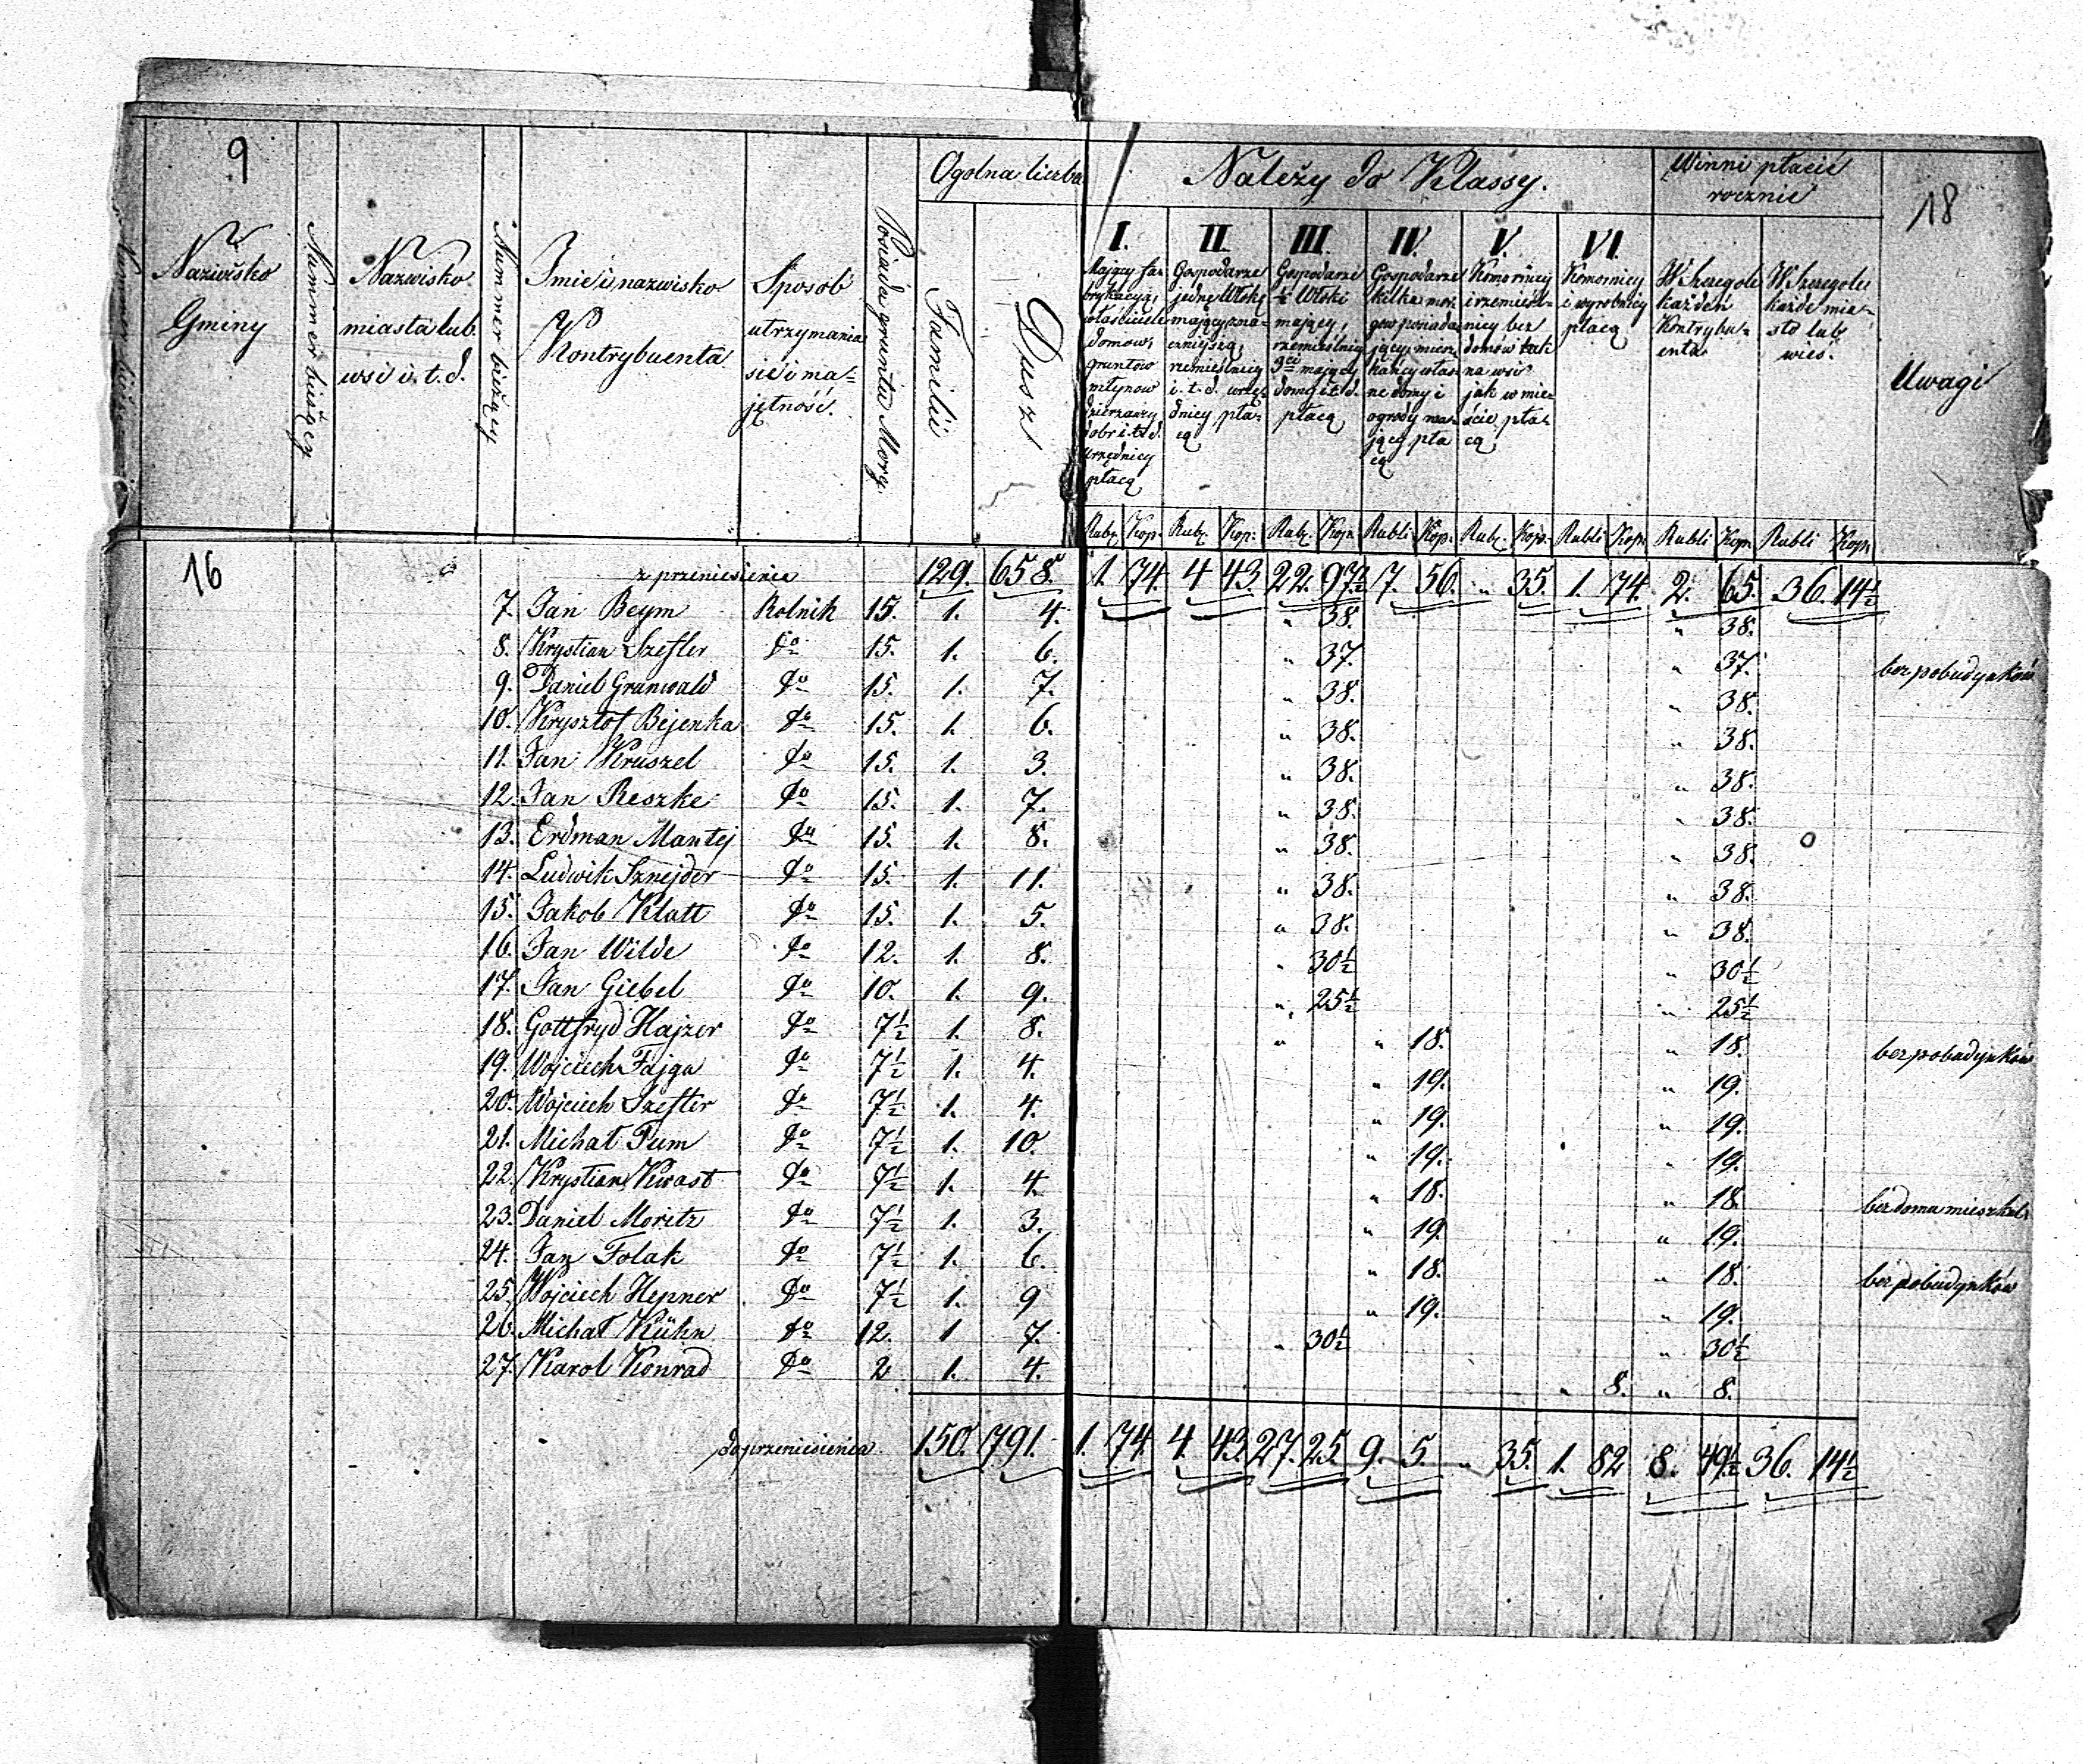 9
18
Nazwisko Gminy
Nummer bieżący
Nazwisko miasta lub wsi i.t.d.
Nummer bieżący
Imie i nazwisko Kontrybuenta
Sposob utrzymania sie i majętność.
Posiada gruntu Morg.
Ogolna liczba
Familii
Dusz
Należy do Klassy.
I.
Mający fabrykacyją, właściciele domow, gruntow młynow dzierżawcy dobr i.t.d. urzędnicy płacą
II.
Gospodarze jednę Włokę mający znaczniejszą, rzemieślnicy i.t.d. urzędnicy płacą
III.
Gospodarze ½ Włoki mający, rzemieślnicy mający domy i.t.d. płacą
IV.
Gospodarze kilka morgow posiadający, mieszkańcy własne domy i ogrody mający płacą
V.
Komornicy i rzemieślnicy bez domów tak na wsi jak w mieście płacą
VI.
Komornicy i wyrobnicy płacą
Winni płacić rocznie
W Szczegole każden Kontrybuenta
W Szczegole każde miasto lub wieś.
Uwagi
Rubl. Kop. Rubl. Kop. Rubl. Kop. Rubli Kop. Rubl. Kop. Rubli Kop. Rubli Kop. Rubli Kop.
16
z przeniesienia 129. 658. 1. 74. 4 43. 22. 97½ 7. 56. " 35. 1. 74. 2. 65. 36. 14½
7. Jan Beym Rolnik 15. 1. 4. " 38. " 38.
8. Krystian Szefler do 15. 1. 6. " 37. " 37. bez pobudynków
9. Daniel Grunwald do 15. 1. 7. " 38. " 38.
10. Krysztof Bejenka do 15. 1. 6. " 38. " 38.
11. Jan Kruszel do 15. 1. 3. " 38. " 38.
12. Jan Reszke do 15. 1. 7. " 38. " 38.
13. Erdman Mantej do 15. 1. 8. " 38. " 38.
14. Ludwik Sznejder do 15. 1. 11. " 38. " 38.
15. Jakob Klatt do 15. 1. 5. " 38. " 38.
16. Jan Wilde do 12. 1. 8. " 30½ " 30½
17. Jan Giebel do 10. 1. 9. " 25½ " 25½
18. Gottfryd Hajzer do 7½ 1. 8. " " 18. " 18. bez pobudynków
19. Wojciech Fajga do 7½ 1. 4. " 19. " 19.
20. Wojciech Szefler do 7½ 1. 4. " 19. " 19.
21. Michał Tum do 7½ 1. 10. " 19. " 19.
22. Krystian Kwast do 7½ 1. 4. " 18. " 18. bez domu mieszkal.
23. Daniel Moritz do 7½ 1. 3. " 19. " 19.
24. Jan Folak do 7½ 1. 6. " 18. " 18. bez pobudynków
25. Wojciech Hepner do 7½ 1. 9 " 19. " 19.
26. Michał Kühn do 12. 1 7. " 30½ " 30½
27. Karol Konrad do 2 1. 4. " 8. " 8.
do przeniesienia 150. 791. 1. 74. 4. 43. 27. 25. 9. 5. " 35. 1. 82 8. 49½ 36. 14½